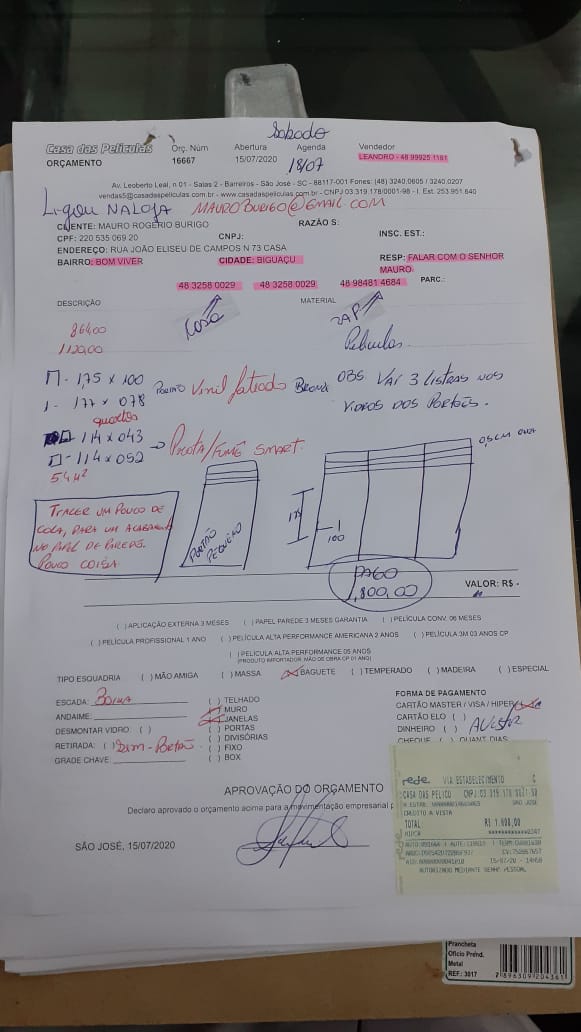 Sabado
Casa das Películas Orç. Núm Abertura Agenda Vendedor
ORÇAMENTO 16667 15/07/2020 18/07 LEANDRO - 48 99925 1181
Av. Leoberto Leal, n 01 - Salas 2 - Barreiros - São José - SC - 88117-001 Fones: (48) 3240.0605 / 3240.0207
vendas5@casadaspeliculas.com.br - www.casadaspeliculas.com.br - CNPJ 03.319.178/0001-98 - I. Est. 253.951.640
Ligou NA LOJA MAUROBURIGO@GMAIL.COM
CLIENTE: MAURO ROGERIO BURIGO RAZÃO S:
CPF: 220 535 069 20 CNPJ: INSC. EST.:
ENDEREÇO: RUA JOÃO ELISEU DE CAMPOS N 73 CASA
BAIRRO: BOM VIVER CIDADE: BIGUAÇU RESP: FALAR COM O SENHOR
MAURO.
48 3258 0029 48 3258 0029 48 98481 4684 PARC.:
DESCRIÇÃO MATERIAL
CASA ZAP
864,00
1120,00
Peliculas.
17 - 175 x 100 PORTÃO Vinil fateado Branco OBS VAI 3 LISTRAS NOS
1 - 177 x 078 VIDROS DOS PORTÕES.
quartos
114 x 043
114 x 052 → Preta/FUMÊ SMART.
54 M²
0,5 CM
TRAZER UM POUCO DE
COLA, PARA UM ACABAMENTO
NO PAPEL DE PAREDE.
POUCO COISA
PORTÃO
PEQUENO
175
100
PAGO
1.800,00
VALOR: R$ -
( ) APLICAÇÃO EXTERNA 3 MESES ( ) PAPEL PAREDE 3 MESES GARANTIA ( ) PELÍCULA CONV. 06 MESES
( ) PELÍCULA PROFISSIONAL 1 ANO ( ) PELÍCULA ALTA PERFORMANCE AMERICANA 2 ANOS ( ) PELÍCULA 3M 03 ANOS CP
( ) PELÍCULA ALTA PERFORMANCE 05 ANOS
(PRODUTO IMPORTADOR MÃO DE OBRA CP 01 ANO)
TIPO ESQUADRIA ( ) MÃO AMIGA ( ) MASSA (X) BAGUETE ( ) TEMPERADO ( ) MADEIRA ( ) ESPECIAL
ESCADA: BAIXA ( ) TELHADO
ANDAIME: (X) MURO
DESMONTAR VIDRO: ( ) (X) JANELAS
( ) PORTAS
RETIRADA: ( ) Sim - Portão ( ) DIVISÓRIAS
( ) FIXO
GRADE CHAVE: ( ) BOX
FORMA DE PAGAMENTO
CARTÃO MASTER / VISA / HIPER
CARTÃO ELO ( )
DINHEIRO ( ) AVISTA
CHEQUE ( ) QUANT DIAS
APROVAÇÃO DO ORÇAMENTO
Declaro aprovado o orçamento acima para a movimentação empresarial p
SÃO JOSÉ, 15/07/2020
rede VIA ESTABELECIMENTO C
CASA DAS PELICU CNPJ 03.319.178/0001-98
SAO JOSE
CREDITO A VISTA
TOTAL R$ 1.800,00
HIPER ************2347
15/07/20 - 14h58
AUTORIZADO MEDIANTE SENHA PESSOAL
rede
Prancheta
Oficio Prend.
Metal
REF.: 3017
7 896309 204361